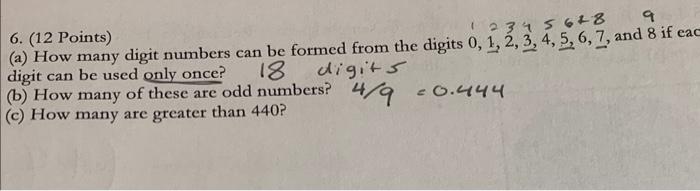 1 2 3 4 5 6 7 8 9
6. (12 Points)
(a) How many digit numbers can be formed from the digits 0, 1, 2, 3, 4, 5, 6, 7, and 8 if eac
digit can be used only once? 18 digits
(b) How many of these are odd numbers? 4/9 = 0.444
(c) How many are greater than 440?